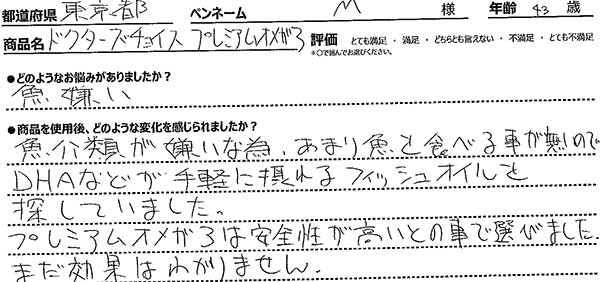 都道府県 東京都 ペンネーム M 様 年齢 43 歳
商品名 ドクターズチョイス プレミアムオメガ3 評価 とても満足 ・ 満足 ・ どちらとも言えない ・ 不満足 ・ とても不満足
※○で囲んでお選びください。
●どのようなお悩みがありましたか?
魚嫌い
●商品を使用後、どのような変化を感じられましたか?
魚介類が嫌いな為、あまり魚を食べる事が無いので
DHAなどが手軽に摂れるフィッシュオイルを
探していました。
プレミアムオメガ3は安全性が高いとの事で選びました。
まだ効果はわかりません。